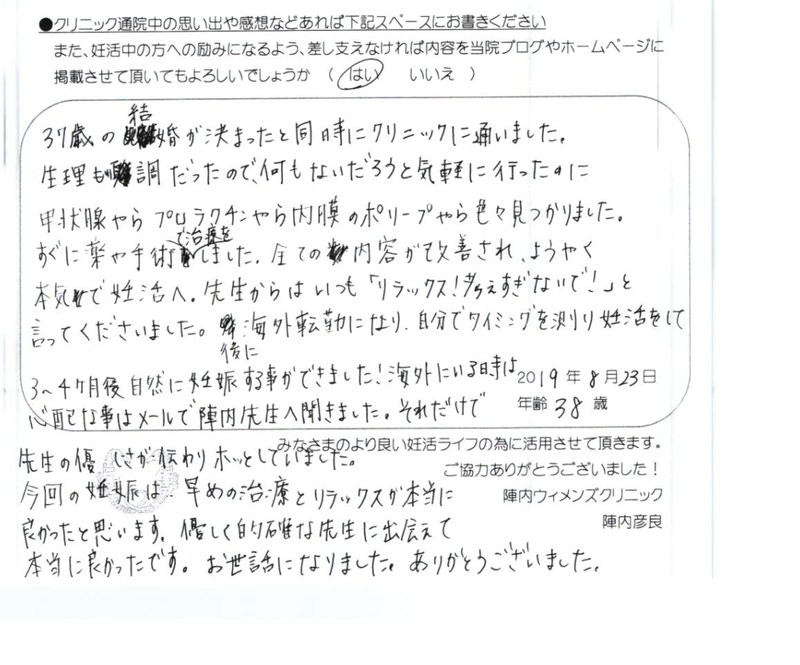 ●クリニック通院中の思い出や感想などあれば下記スペースにお書きください
また、妊活中の方への励みになるよう、差し支えなければ内容を当院ブログやホームページに
掲載させて頂いてもよろしいでしょうか ( はい いいえ )
37歳の結婚が決まったと同時にクリニックに通いました。
生理も順調だったので、何もないだろうと気軽に行ったのに
甲状腺やら プロラクチンやら内膜のポリープやら色々見つかりました。
すぐに薬や手術で治療をしました。全ての内容が改善され、ようやく
本気で妊活へ。先生からはいつも「リラックス!考えすぎないで!」と
言ってくださいました。後に海外転勤になり、自分でタイミングを測り妊活をして
3~4ヶ月後自然に妊娠する事ができました!海外にいる時は
2019年8月23日
心配な事はメールで陣内先生へ聞きました。それだけで
年齢 38 歳
みなさまのより良い妊活ライフの為に活用させて頂きます。
先生の優しさが伝わりホッとしていました。
ご協力ありがとうございました!
今回の妊娠は、早めの治療とリラックスが本当に
陣内ウィメンズクリニック
良かったと思います。優しく的確な先生に出会えて
陣内彦良
本当に良かったです。お世話になりました。ありがとうございました。